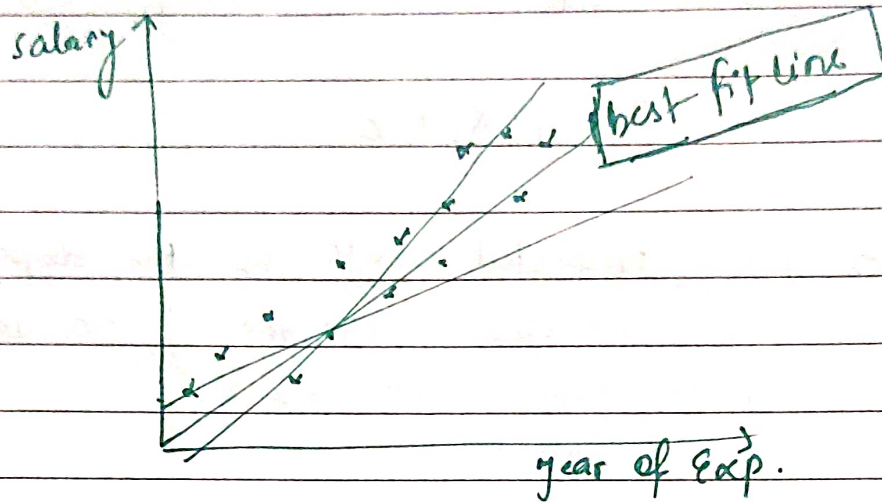 salary
best fit line
year of Exp.